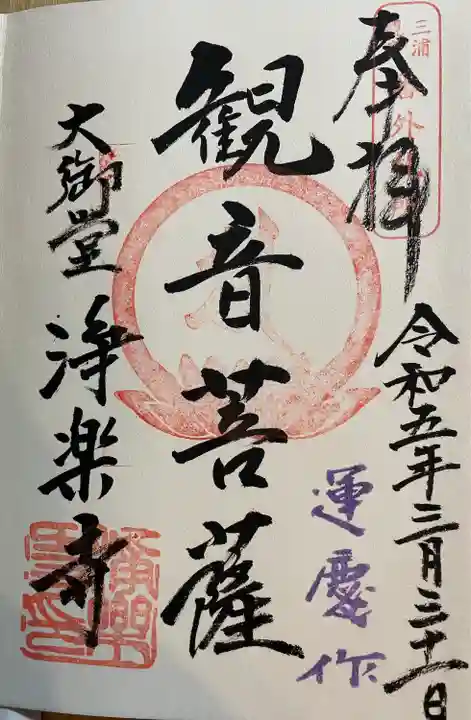 三浦
外
奉拝
令和五年三月三十一日
運慶作
観音菩薩
大御堂 浄楽寺